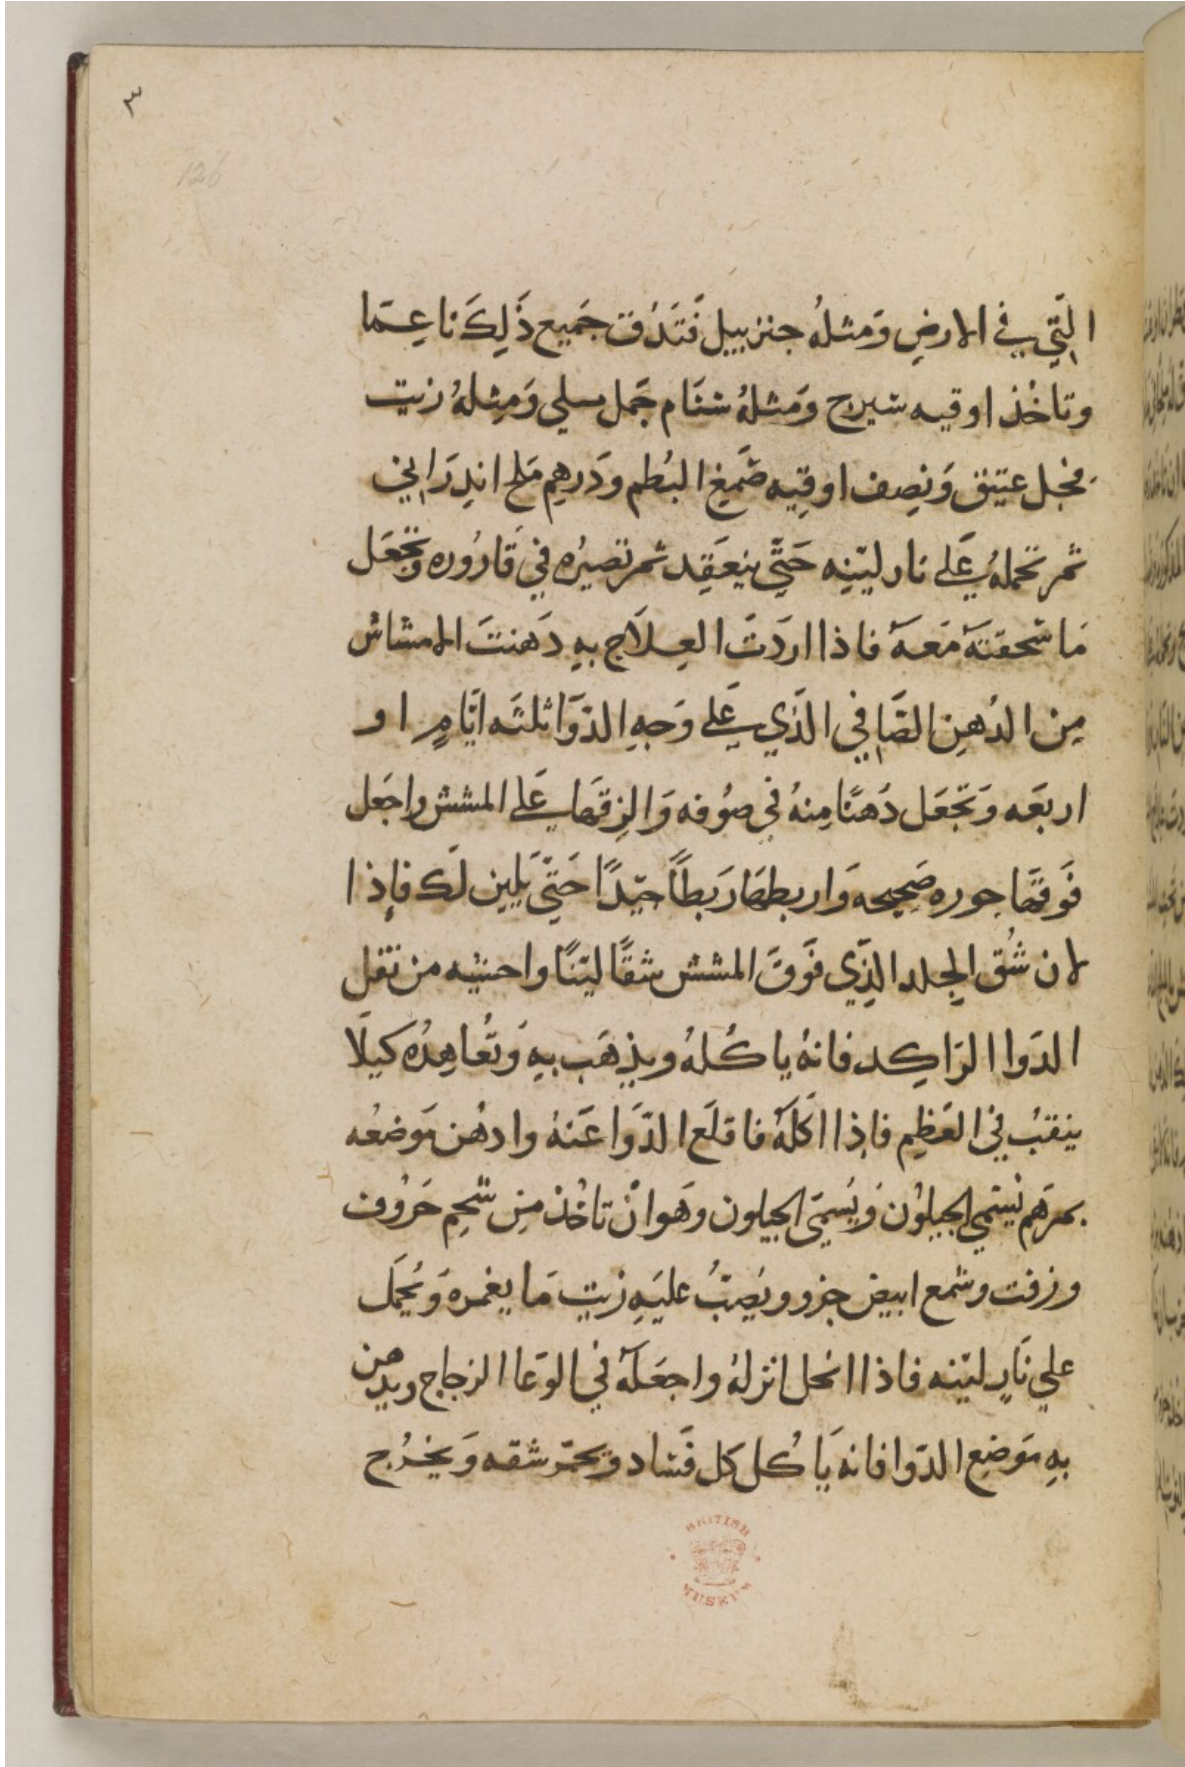 ٣
126
التَّي في الارضِ وَمثلهُ جنزبيل فَتَدُق جَميع ذَلِكَ ناعِمّا
وتاخُذ اوقيه شيرج وَمثلهُ سَنَام جَمل سلي وَمِثلهُ زيت
فجل عتيق وَنِصف اوقِيه صَمِغ البُطم وَدَرهِم مَلح اندِرَاني
ثمر تحملهُ عَلي نار ليّنِه حَتَّي ينعَقِد ثمر تصيرُه في قَارُوره وتجعَل
مَا سَحقتَهَ مَعهَ فاذا ارَدَتَ العِلَاج بهِ دَهنتَ الامشاش
مِن الدُهنِ الصَّافي الذَي عَلي وَجهِ الدَوَا ثلثَه ايَّامٍ او
اربعَه وَتجعَل دُهنًا مِنهُ في صوُفه وَالزِقهَا عَلي المشش واجَعل
فَوقهَا جوره صَحِيحه وَاربطهَا رَبطَاً جيّدًا حَتّي يَلين لَك فاِذا
لان شُق الجِلد الذِّي فَوقَ المشش شقًّا ليّنًا واحشيه من تفل
الدَوا الرَاكِد فانهُ ياكُلهُ ويذِهَب بهِ وَتُعاهِدُه كيلَا
ينقبُ في العَظِم فاذِا اكَلهَ فاقلَع الدَوَا عَنهُ وادهُن مَوضعُه
بمرَهِم يُسَمي الجيلوُن وَيُسَميَ الجيلون وَهَو انْ تاخُذ مِن شحِم خَرُوف
وزفت وشمع ابيض جزو ويُصَبُّ عليَهِ زيت مَا يغمره وَيُحمَل
علي نَارٍ ليّنه فاذا انحل انزلهُ واجعَلهَ في الوَعا الزجاج ويدهن
بهِ مَوضِع الدَوا فانه يَاكُل كل فَسَاد ويحمّر شقه وَيَخرُج
BRITISH
MUSEUM